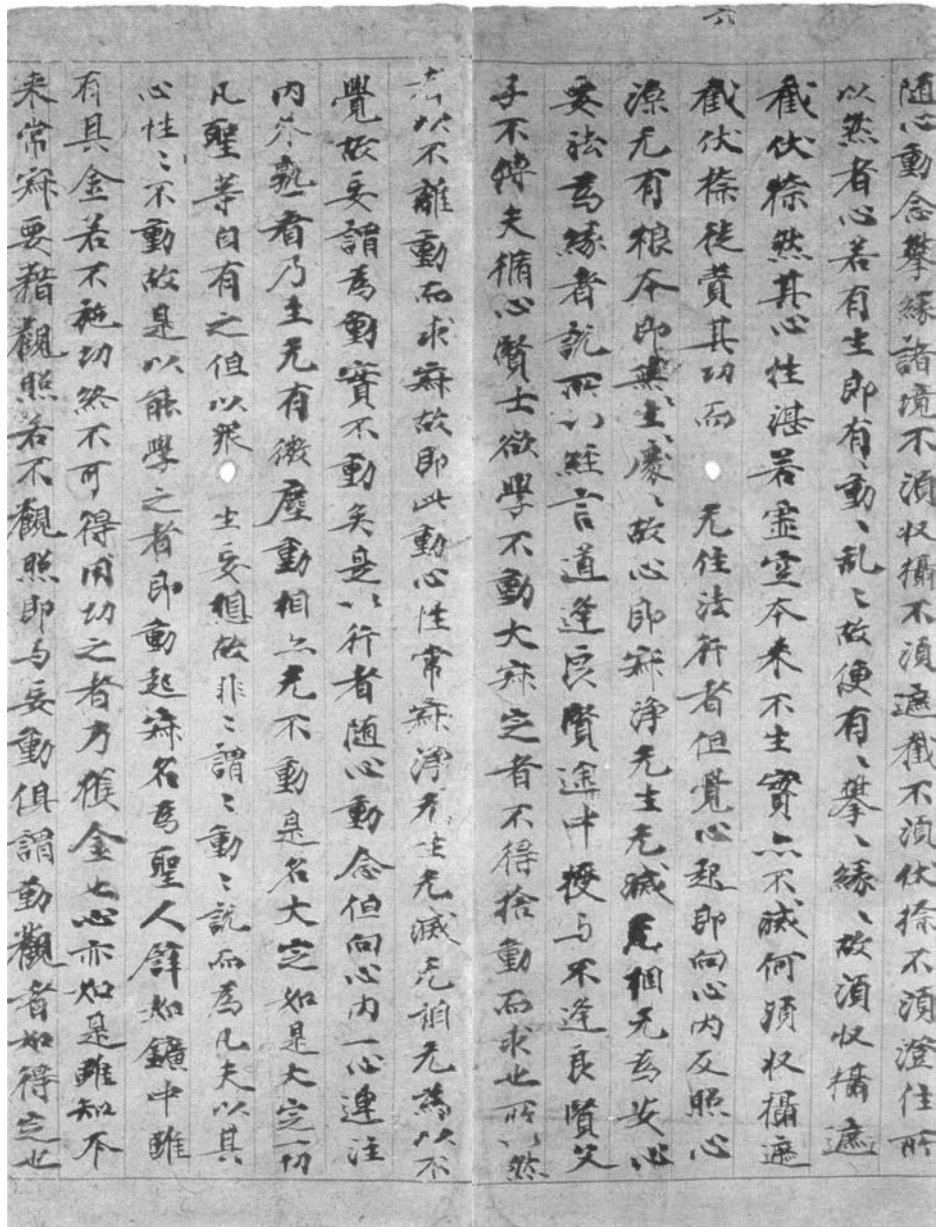 六
随心動念攀緣諸境不須収攝不須遮截不須伏捺不須澄住所
以然者心若有生即有動〻乱〻故便有〻攀〻緣〻故須収攝遮
截伏捺然其心性湛若虚空夲来不生實亦不滅何須収攝遮
截伏捺徒費其功而 无住法行者但覺心起即向心內反照心
源无有根夲即無生處〻故心即寂淨无生无滅无相无為安心
要法為緣者說所以經言道逢良賢途中授与不逢良賢父
子不傳夫脩心賢士欲學不動大寂定者不得捨動而求也所以然
者以不離動而求寂故即此動心性常寂淨无生无滅无相无為以不
覺故妄謂為動實不動矣是以行者随心動念但向心內一心連注
內外熟看乃至无有微塵動相亦无不動是名大定如是大定一切
凡聖等自有之但以衆 生妄想故非〻謂〻動〻說而為凡夫以其
心性〻不動故是以能學之者即動起寂名為聖人譬如鑛中雖
有具金若不施功終不可得用功之者方獲金也心亦如是雖知夲
来常寂要藉觀照若不觀照即与妄動俱謂動觀者如得定也